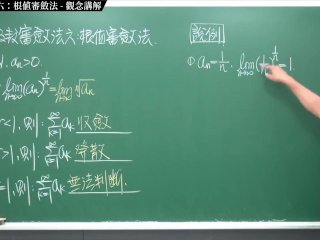 六：根值審斂法 - 觀念講解
審斂法六：根值審斂法.
aₙ>0.
lim n→∞ (aₙ)^(1/n) = lim n→∞ ⁿ√aₙ
<1, 則 Σ aₖ 收斂
>1, 則 Σ aₖ 發散
=1, 則 Σ aₖ 無法判斷.
說例
① aₙ=1/n. lim n→∞ =1.